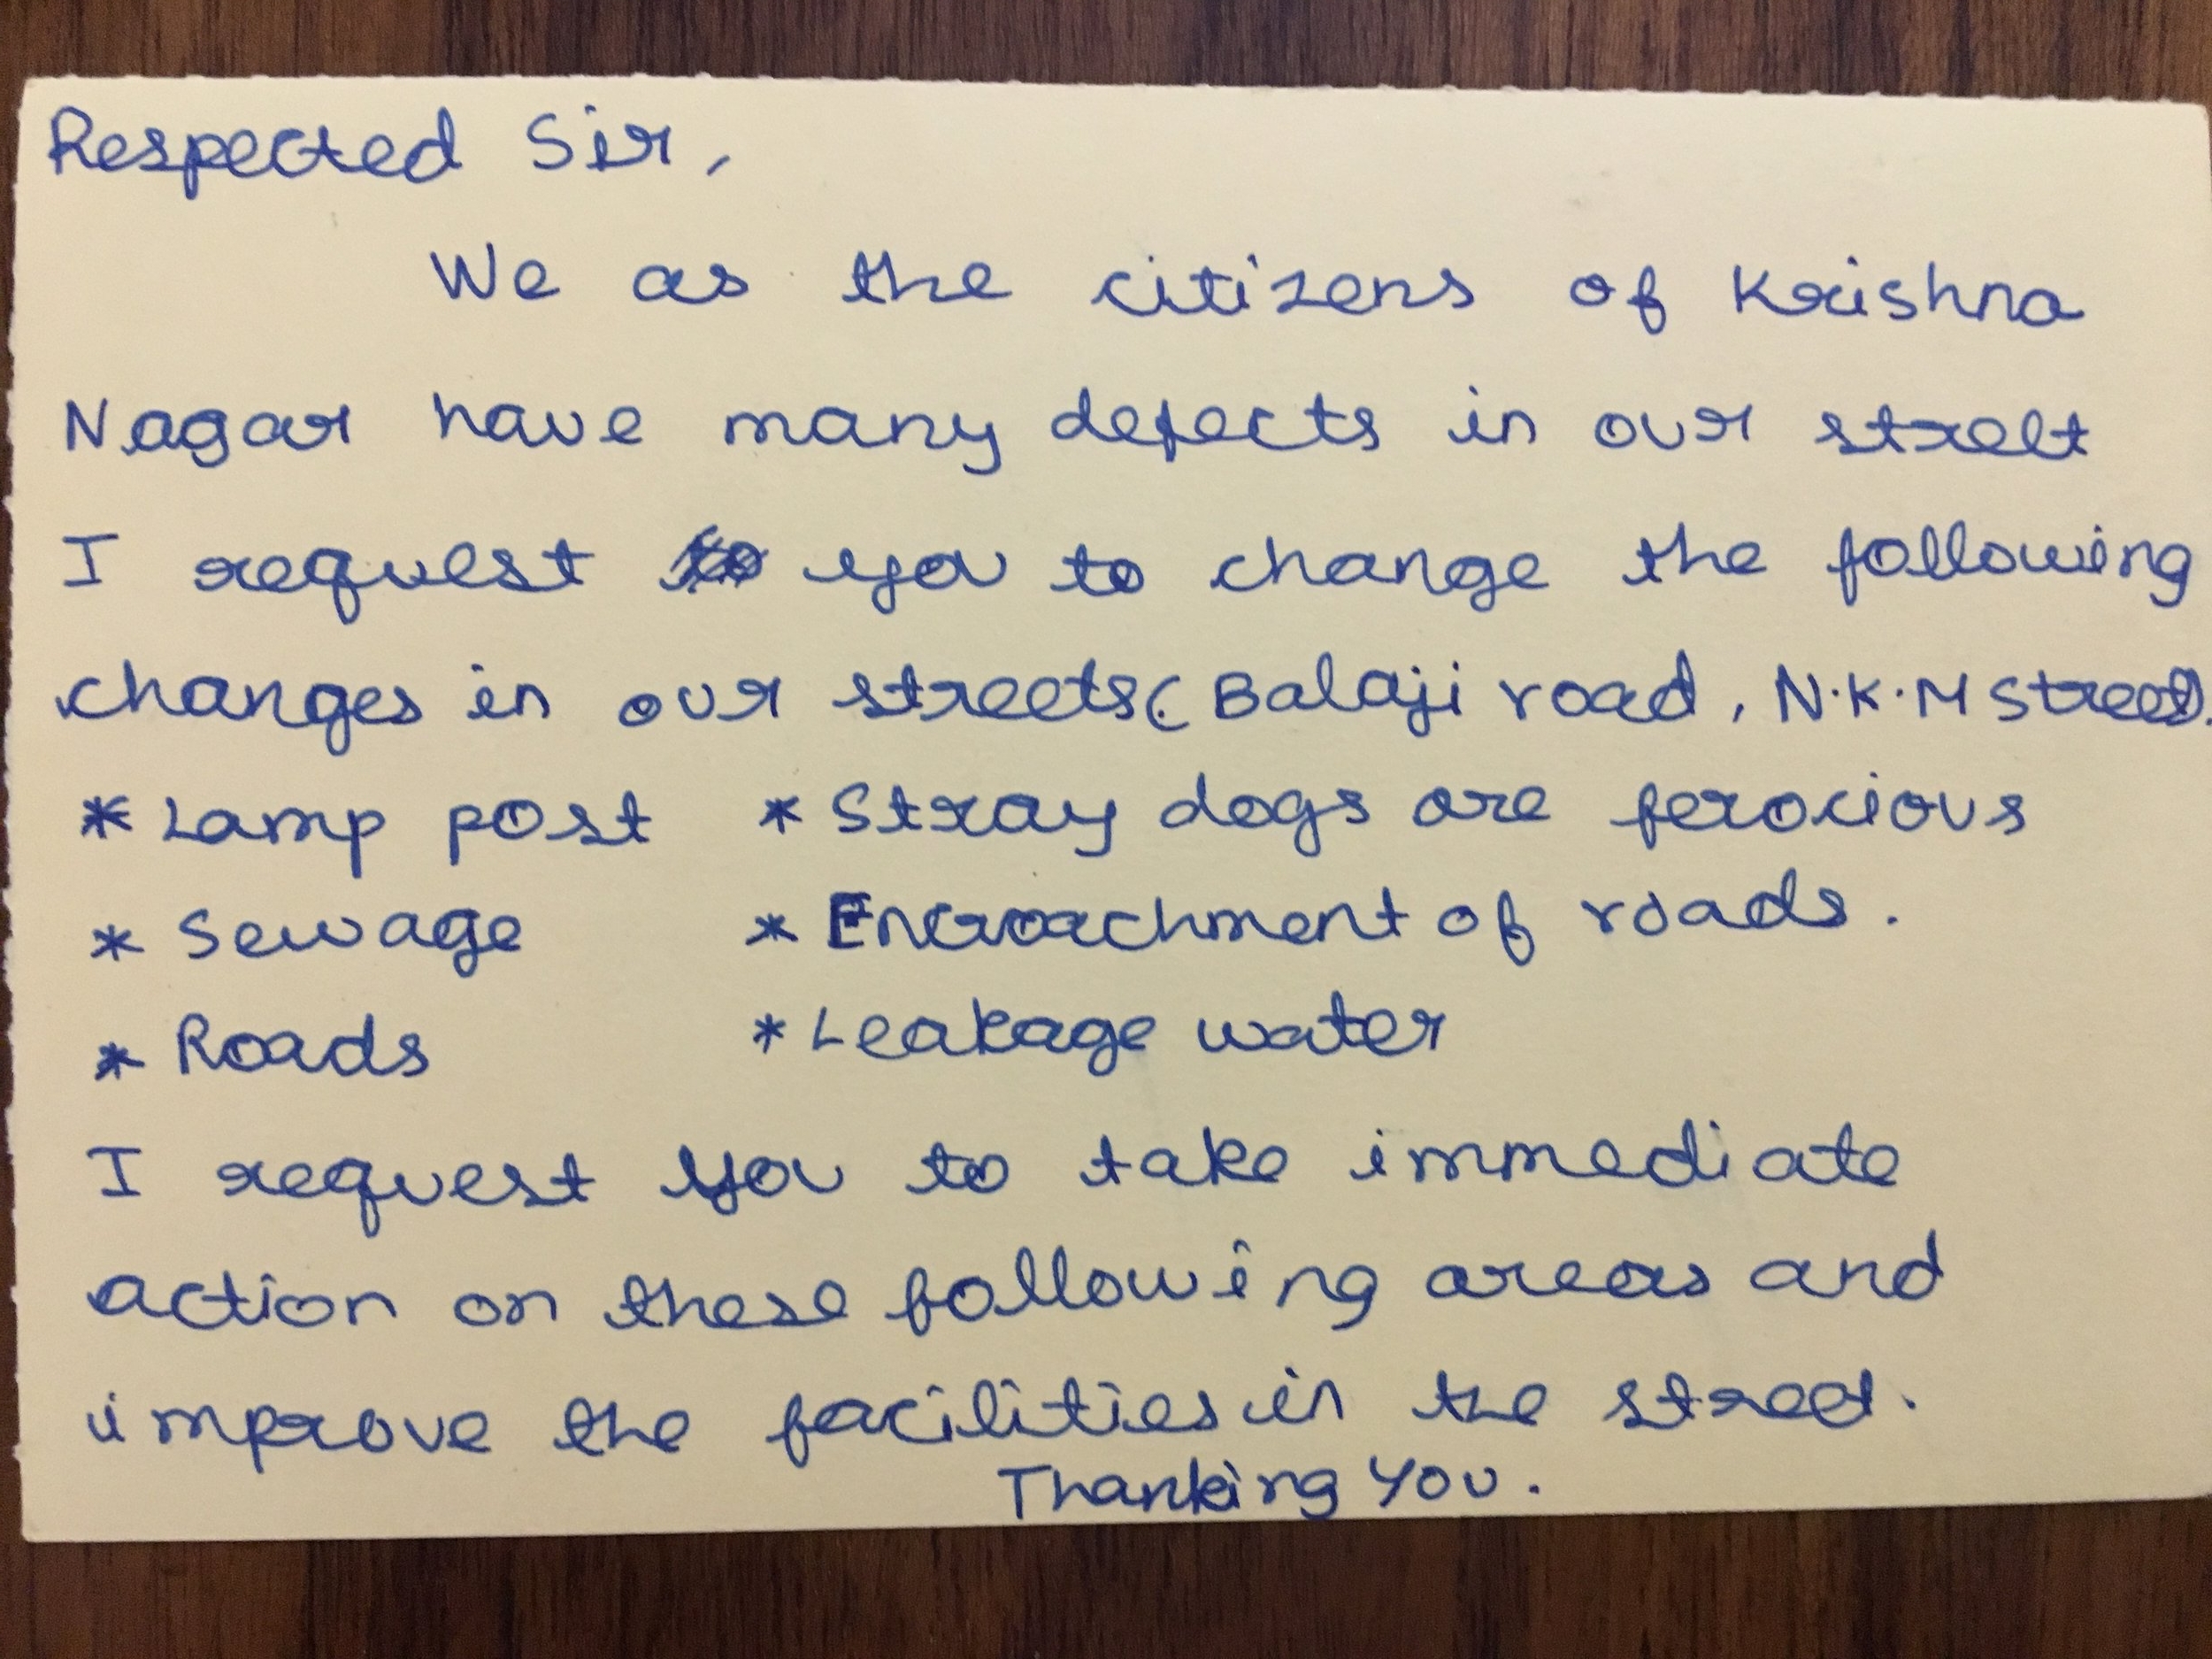 Respected Sir,
We as the citizens of Krishna
Nagar have many defects in our street
I request you to change the following
changes in our streets( Balaji road, N.K.M street).
* Lamp post * Stray dogs are ferocious
* Sewage * Encroachment of roads.
* Roads * Leakage water
I request you to take immediate
action on these following areas and
improve the facilities in the street.
Thanking you.